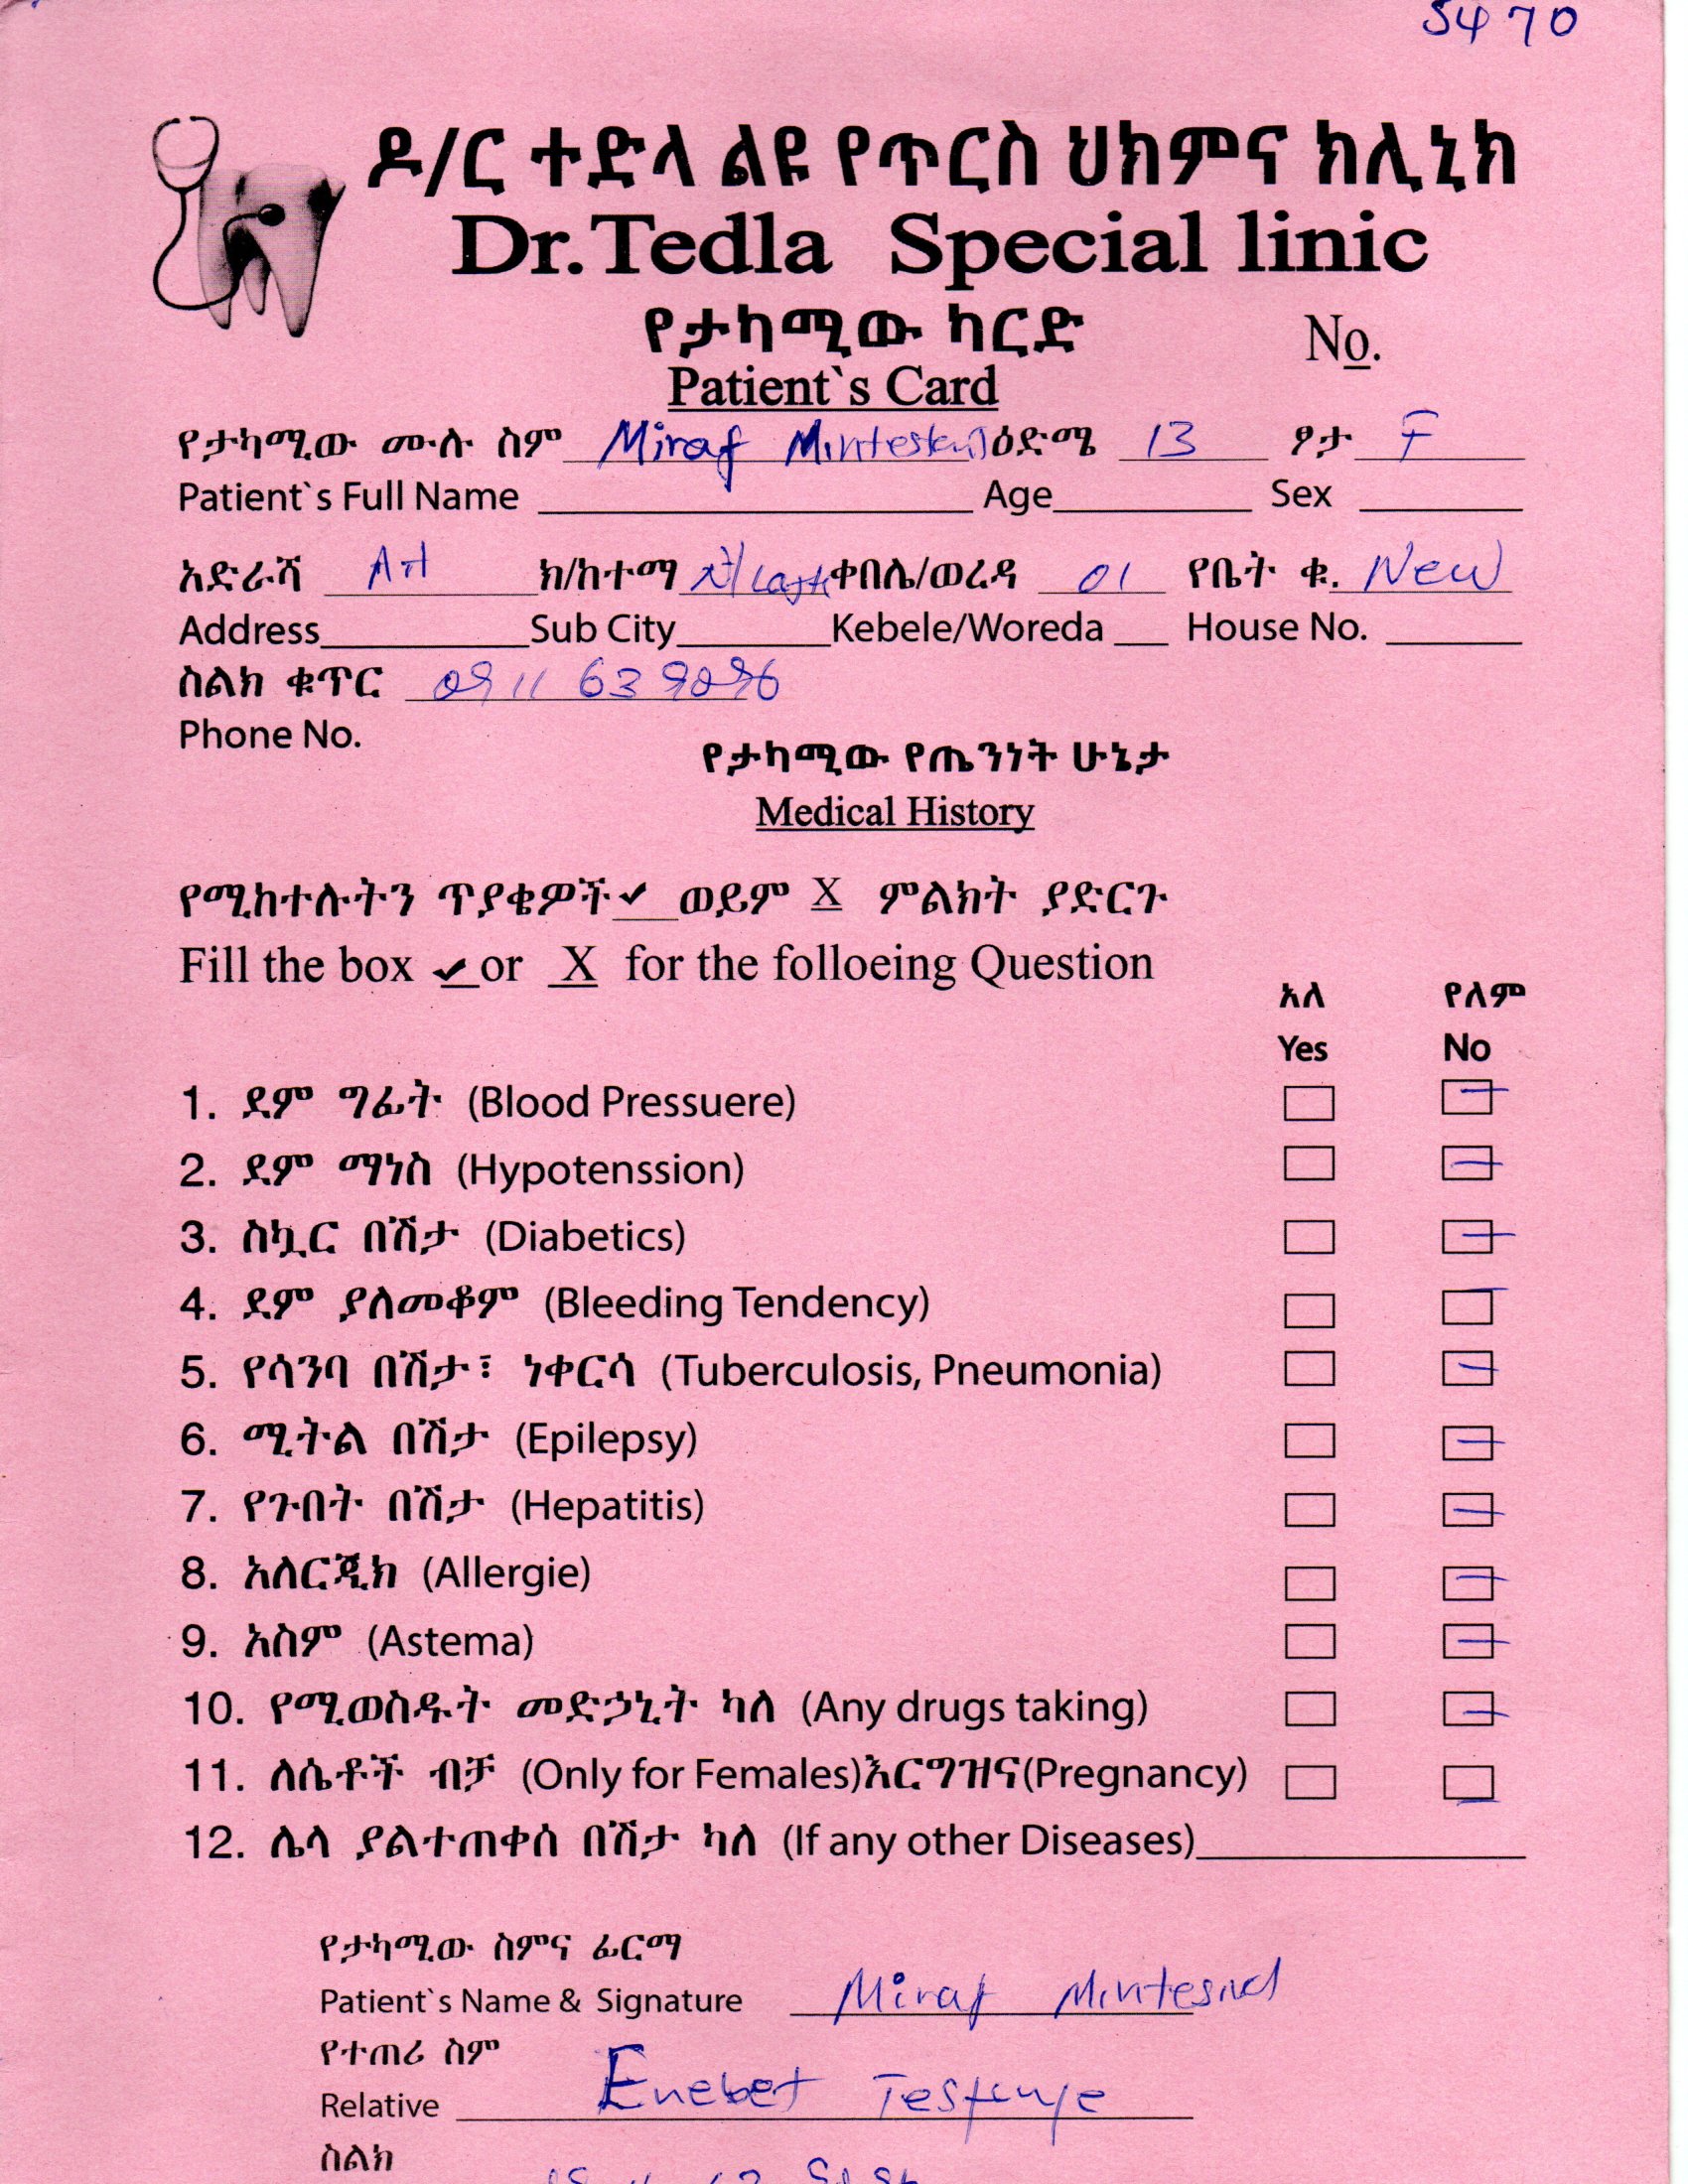 5470
ዶ/ር ተድላ ልዩ የጥርስ ህክምና ክሊኒክ
Dr.Tedla Special linic
የታካሚው ካርድ
No.
Patient`s Card
የታካሚው ሙሉ ስም Miraf ዕድሜ 13 ፆታ F
Patient`s Full Name Age Sex
አድራሻ ክ/ከተማ ቀበሌ/ወረዳ 01 የቤት ቁ. New
Address Sub City Kebele/Woreda House No.
ስልክ ቁጥር 0911 63
Phone No.
የታካሚው የጤንነት ሁኔታ
Medical History
የሚከተሉትን ጥያቄዎች ✓ ወይም X ምልክት ያድርጉ
Fill the box ✓ or X for the folloeing Question
አለ የለም
Yes No
1. ደም ግፊት (Blood Pressuere)
2. ደም ማነስ (Hypotenssion)
3. ስኳር በሽታ (Diabetics)
4. ደም ያለመቆም (Bleeding Tendency)
5. የሳንባ በሽታ፣ ነቀርሳ (Tuberculosis, Pneumonia)
6. ሚትል በሽታ (Epilepsy)
7. የጉበት በሽታ (Hepatitis)
8. አለርጂክ (Allergie)
9. አስም (Astema)
10. የሚወስዱት መድኃኒት ካለ (Any drugs taking)
11. ለሴቶች ብቻ (Only for Females)እርግዝና(Pregnancy)
12. ሌላ ያልተጠቀሰ በሽታ ካለ (If any other Diseases)
የታካሚው ስምና ፊርማ
Patient`s Name & Signature Miraf Mintesnot
የተጠሪ ስም
Relative Enebet Tesfaye
ስልክ